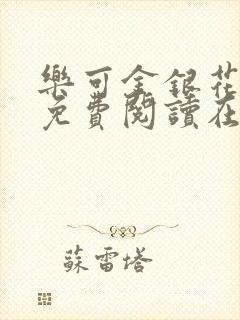 樂可金銀花
免費閱讀在
蘇雷塔